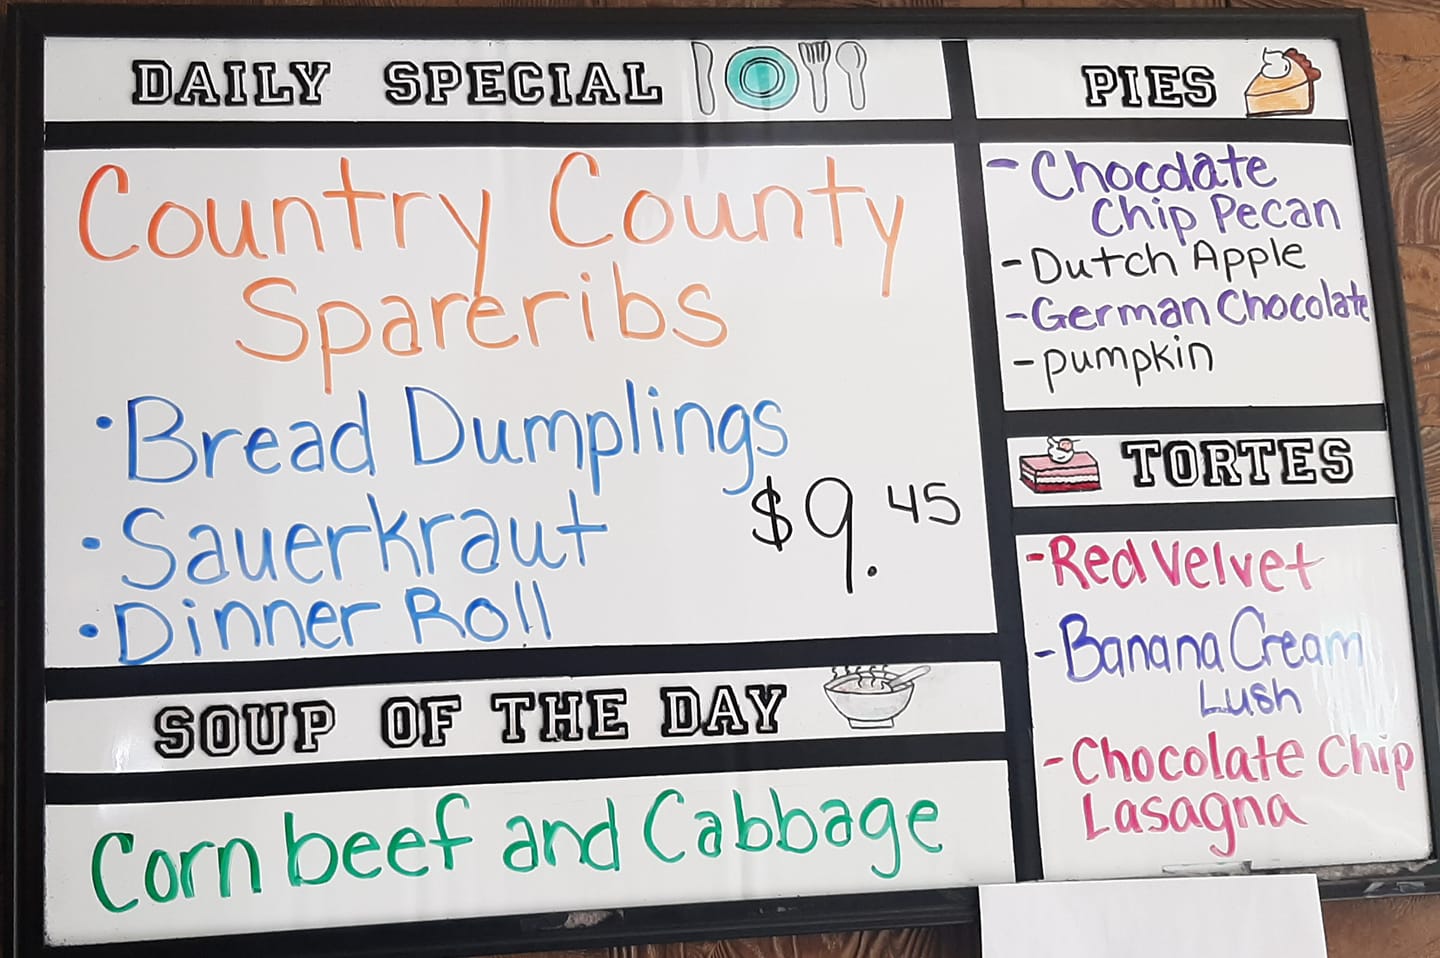 DAILY SPECIAL
Country County
Spareribs
• Bread Dumplings
• Sauerkraut
• Dinner Roll
$9.45
SOUP OF THE DAY
Corn beef and Cabbage
PIES
- Chocolate
Chip Pecan
- Dutch Apple
- German Chocolate
- pumpkin
TORTES
- Red Velvet
- Banana Cream
Lush
- Chocolate Chip
Lasagna